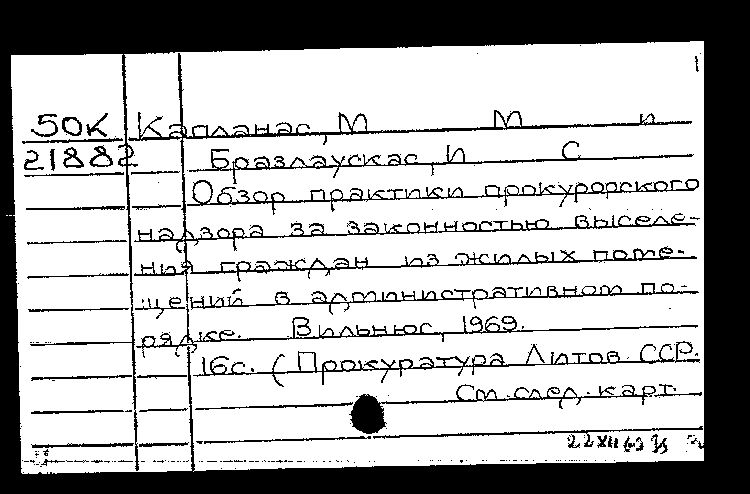 50К Капланас, М М и
21882 Бразлаускас, И С
Обзор практики прокурорского
надзора за законностью выселе-
ния граждан из жилых поме-
щений в административном по-
рядке. Вильнюс, 1969.
16с. (Прокуратура Литов. ССР.
См. след. карт.